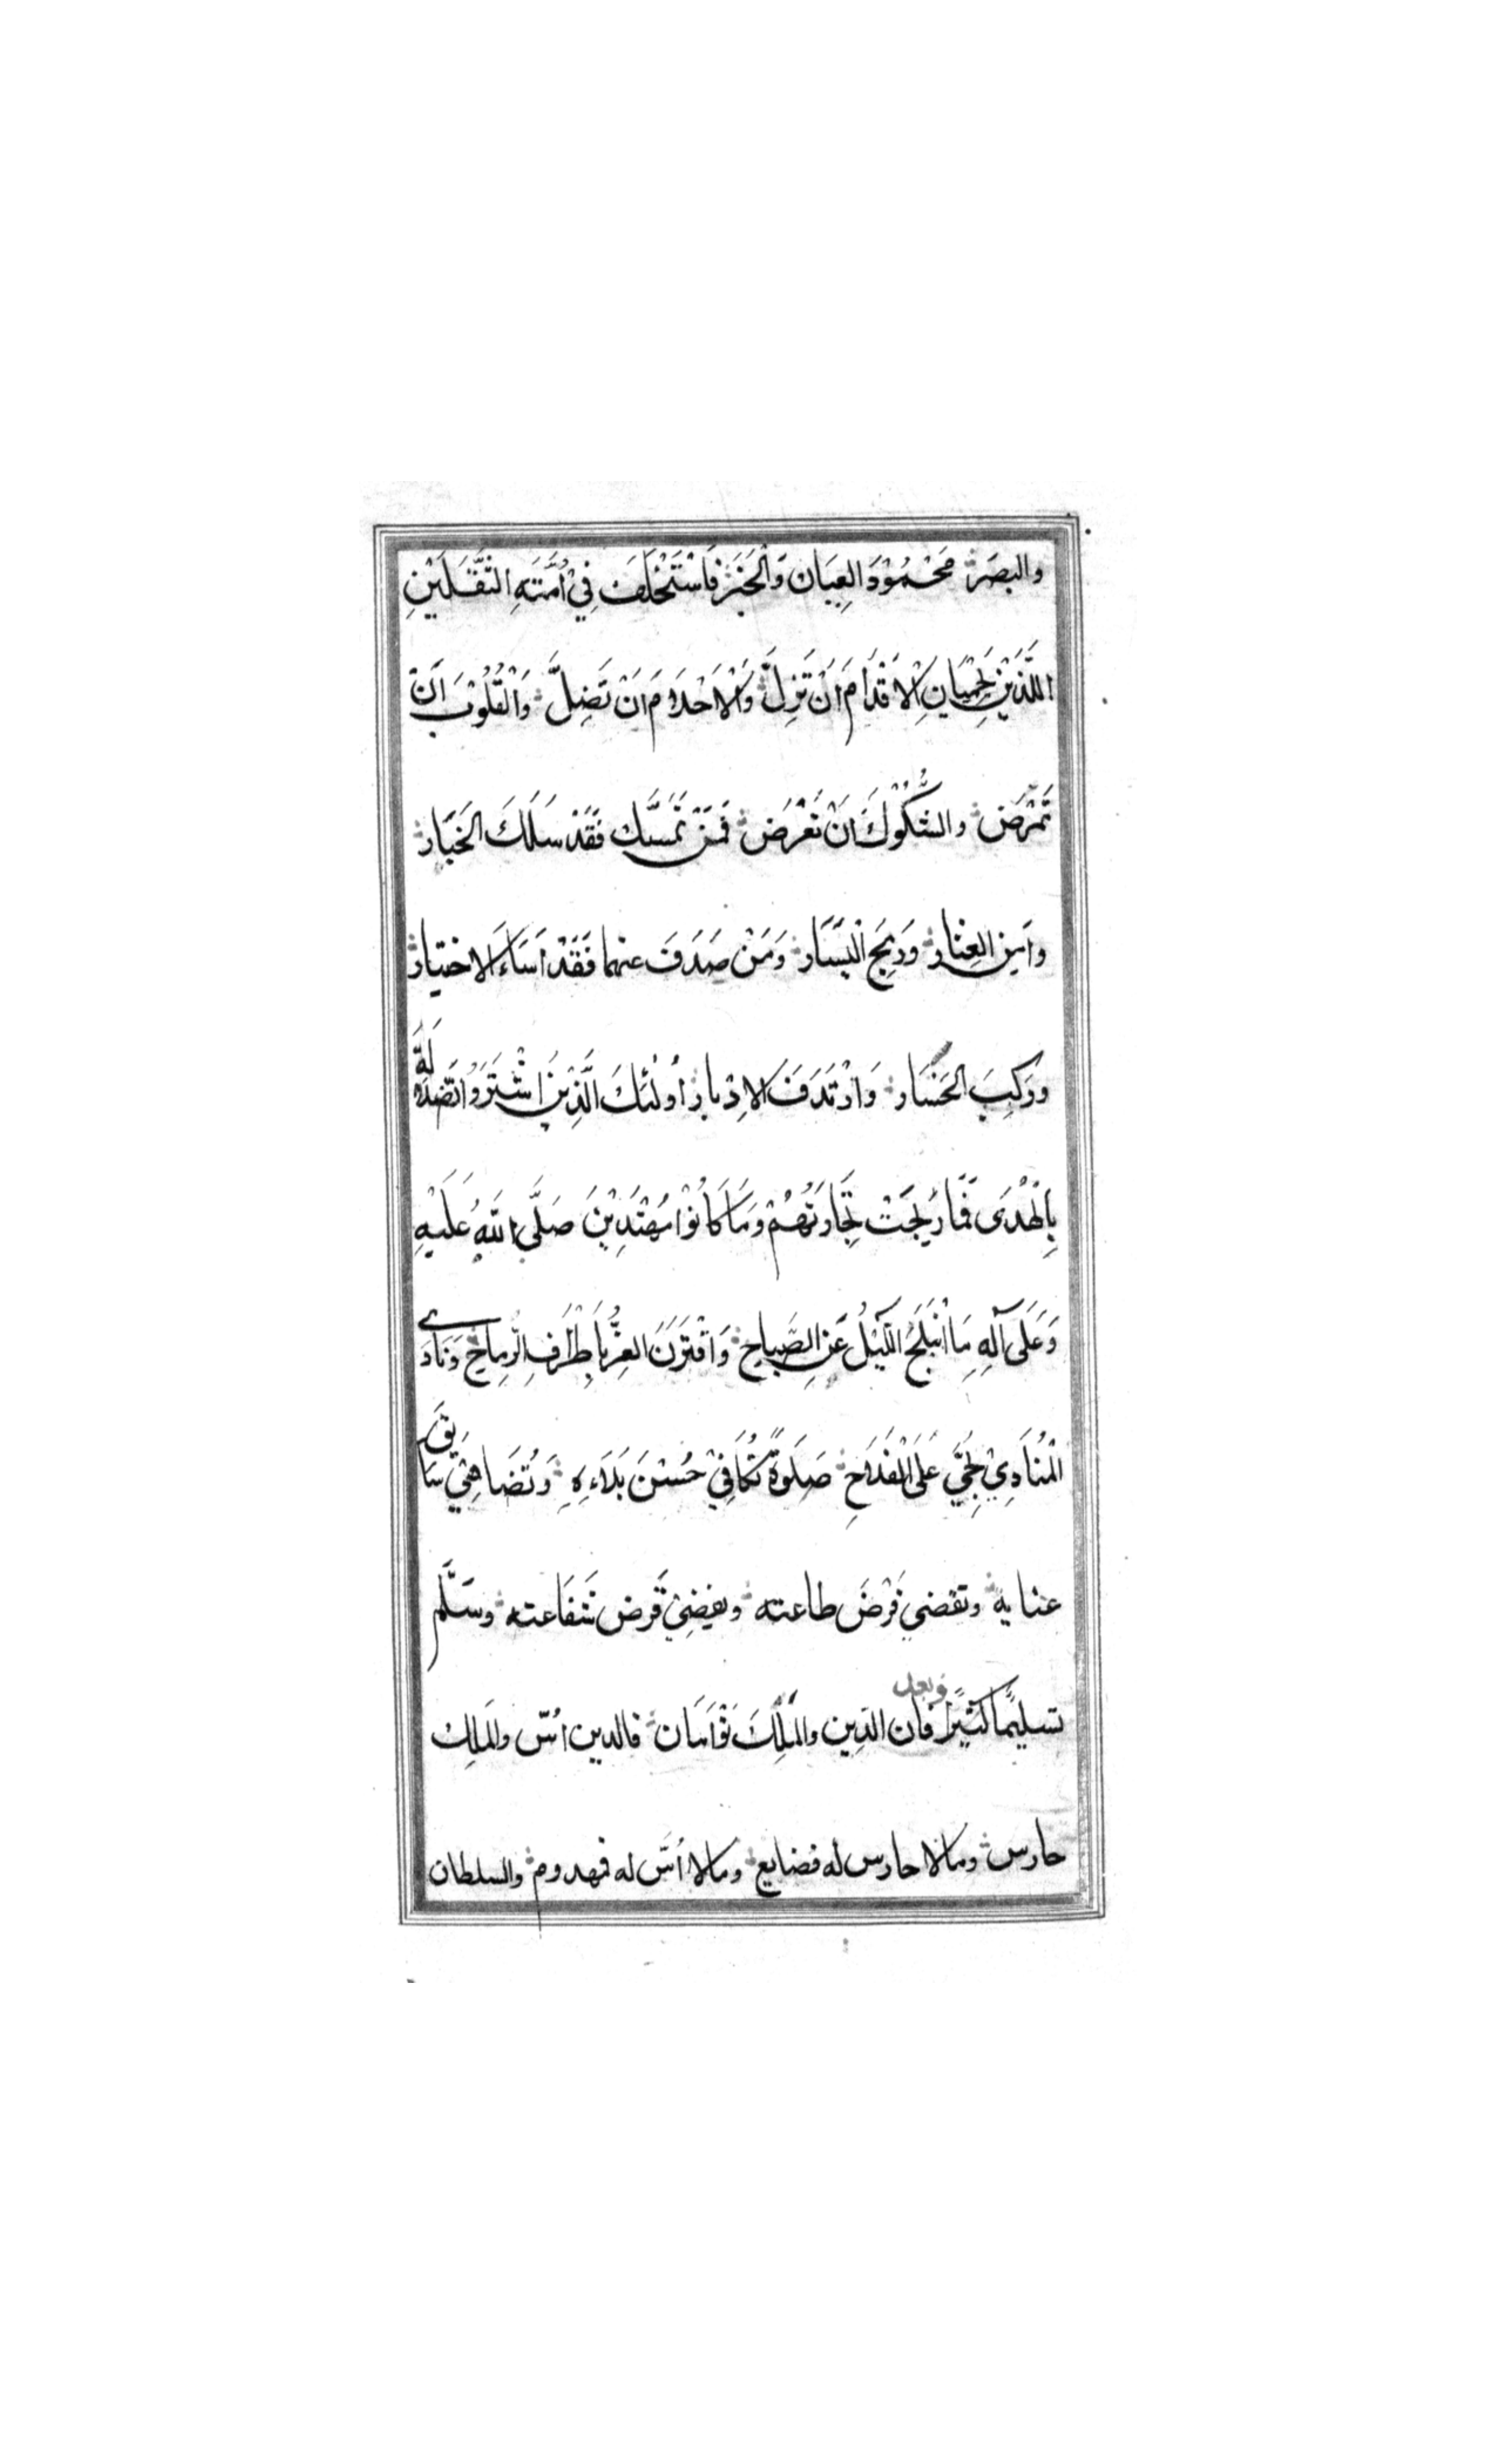 والبصَر مَحْمُوْدَ العِيَان وَالْخَبَر فَاسْتَخْلَفَ فِيْ أُمَّتِهِ الثَّقَلَيْنِ
اللَّذَيْنِ يَحْمِيَانِ الْاَقْدَامَ اَنْ تَزِلَّ وَالْاَحْلَامَ اَنْ تَضِلَّ وَالْقُلُوْبَ اَنْ
تَمْرَضَ والشُّكُوْكَ اَنْ تَعْرَضَ فَمَنْ تَمَسَّك فَقَدْ سَلَكَ الخَبَار
وَاَمِنَ العِثار وَرَبِحَ الْيَسَار وَمَنْ صَدَفَ عنهما فَقَدْ اَسَاءَ الاختيار
وَرَكِبَ الخَسَار وَارْتَدَفَ الاِدْبار اُولٰئِكَ الَّذِيْنَ اشْتَرَوُا الضَّلَالَةَ
بِالْهُدَى فَمَا رَبِحَتْ تِجَارَتُهُمْ وَمَا كَانُوْا مُهْتَدِيْنَ صَلَّى اللهُ عَلَيْهِ
وَعَلَى آلِهِ مَا انْبَلَجَ اللَّيْلُ عَنِ الصَّباحِ وَاقْتَرَنَ العِزُّ بِاَطْرَافِ الرِّمَاحِ وَنَادَى
الْمُنَادِيْ بِحَيَّ عَلَى الْفَلَاحِ صَلَوةً تُكَافِيْ حُسْنَ بَلَاءِهِ وَتُضَاهِيْ سَابِقَ
عنايه وتقضي فَرْضَ طاعته ويفيضِيْ قَرض شَفَاعته وسَلَّم
تسليمًا كثيرًا وبعد فان الدّين والمُلْكَ تَوْاَمَان فالدين اُسّ والمَلِك
حارس وما لا حارس له فضايع وما لا اُسَّ له فمهدوم والسلطان